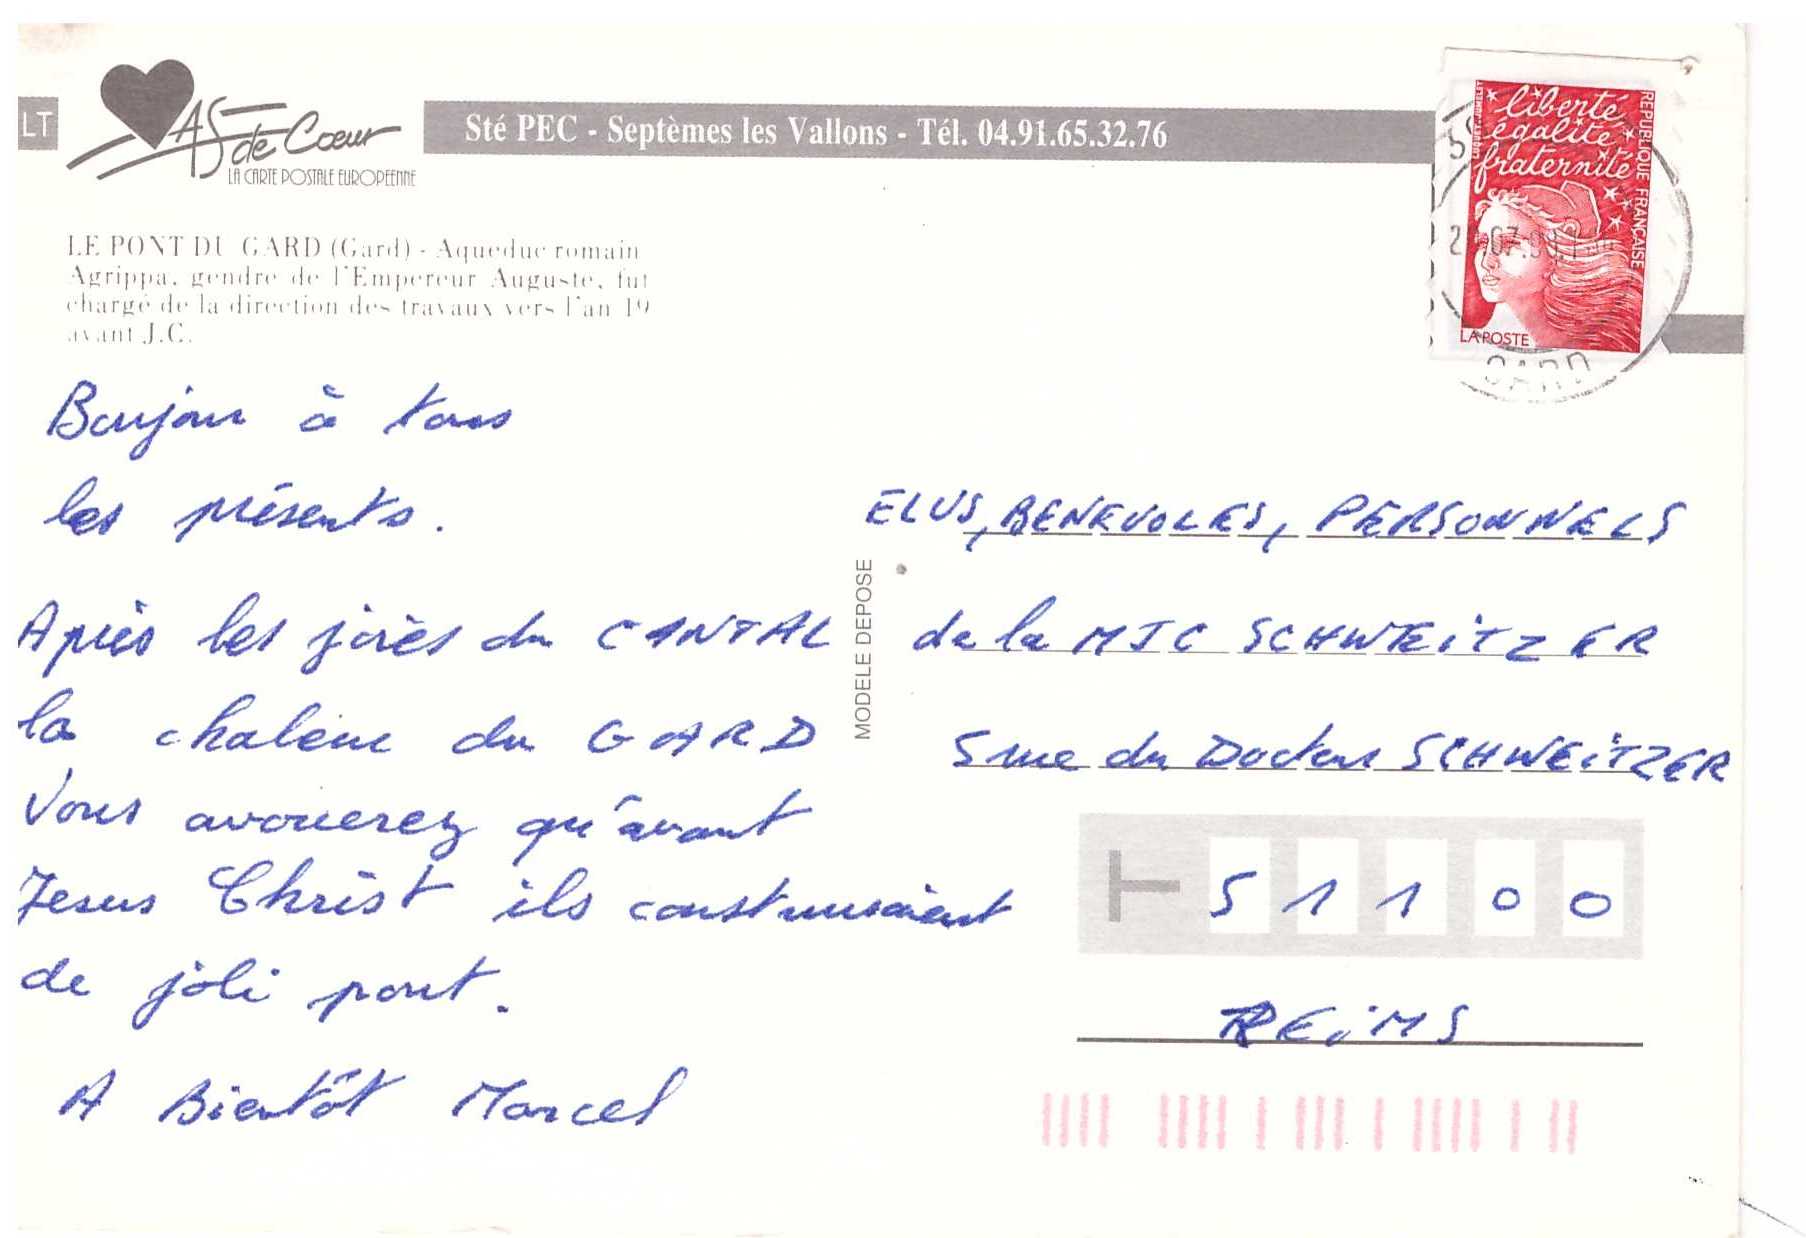 LT
AS de Cœur
LA CARTE POSTALE EUROPEENNE
Sté PEC - Septèmes les Vallons - Tél. 04.91.65.32.76
LE PONT DU GARD (Gard) - Aqueduc romain
Agrippa, gendre de l'Empereur Auguste, fut
chargé de la direction des travaux vers l'an 19
avant J.C.
liberté
égalité
fraternité
REPUBLIQUE FRANÇAISE
LA POSTE
GARD
Bonjour à tous
les présents.
Après les joies du CANTAL
la chaleur du GARD
Vous avouerez qu'avant
Jesus Christ ils construisaient
de joli pont.
A Bientôt Marcel
MODELE DEPOSE
ELUS, BENEVOLES, PERSONNELS
de la MJC SCHWEITZER
5 rue du Docteur SCHWEITZER
51100
REIMS